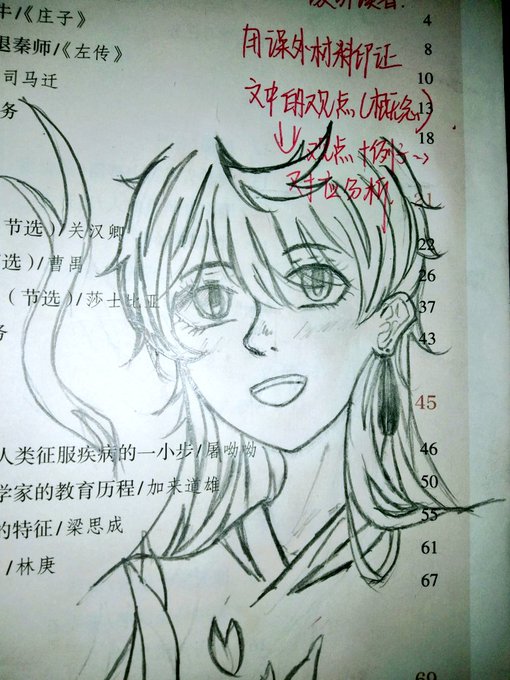 牛/《庄子》 4
退秦师/《左传》 8
司马迁 10
务 13
18
用课外材料印证
文中的观点(概念)
↓ 观点+例子→
对应分析
21
节选）/关汉卿 22
选）/曹禺 26
（节选）/莎士比亚 37
务 43
45
人类征服疾病的一小步/屠呦呦 46
学家的教育历程/加来道雄 50
的特征/梁思成 55
/林庚 61
67
69